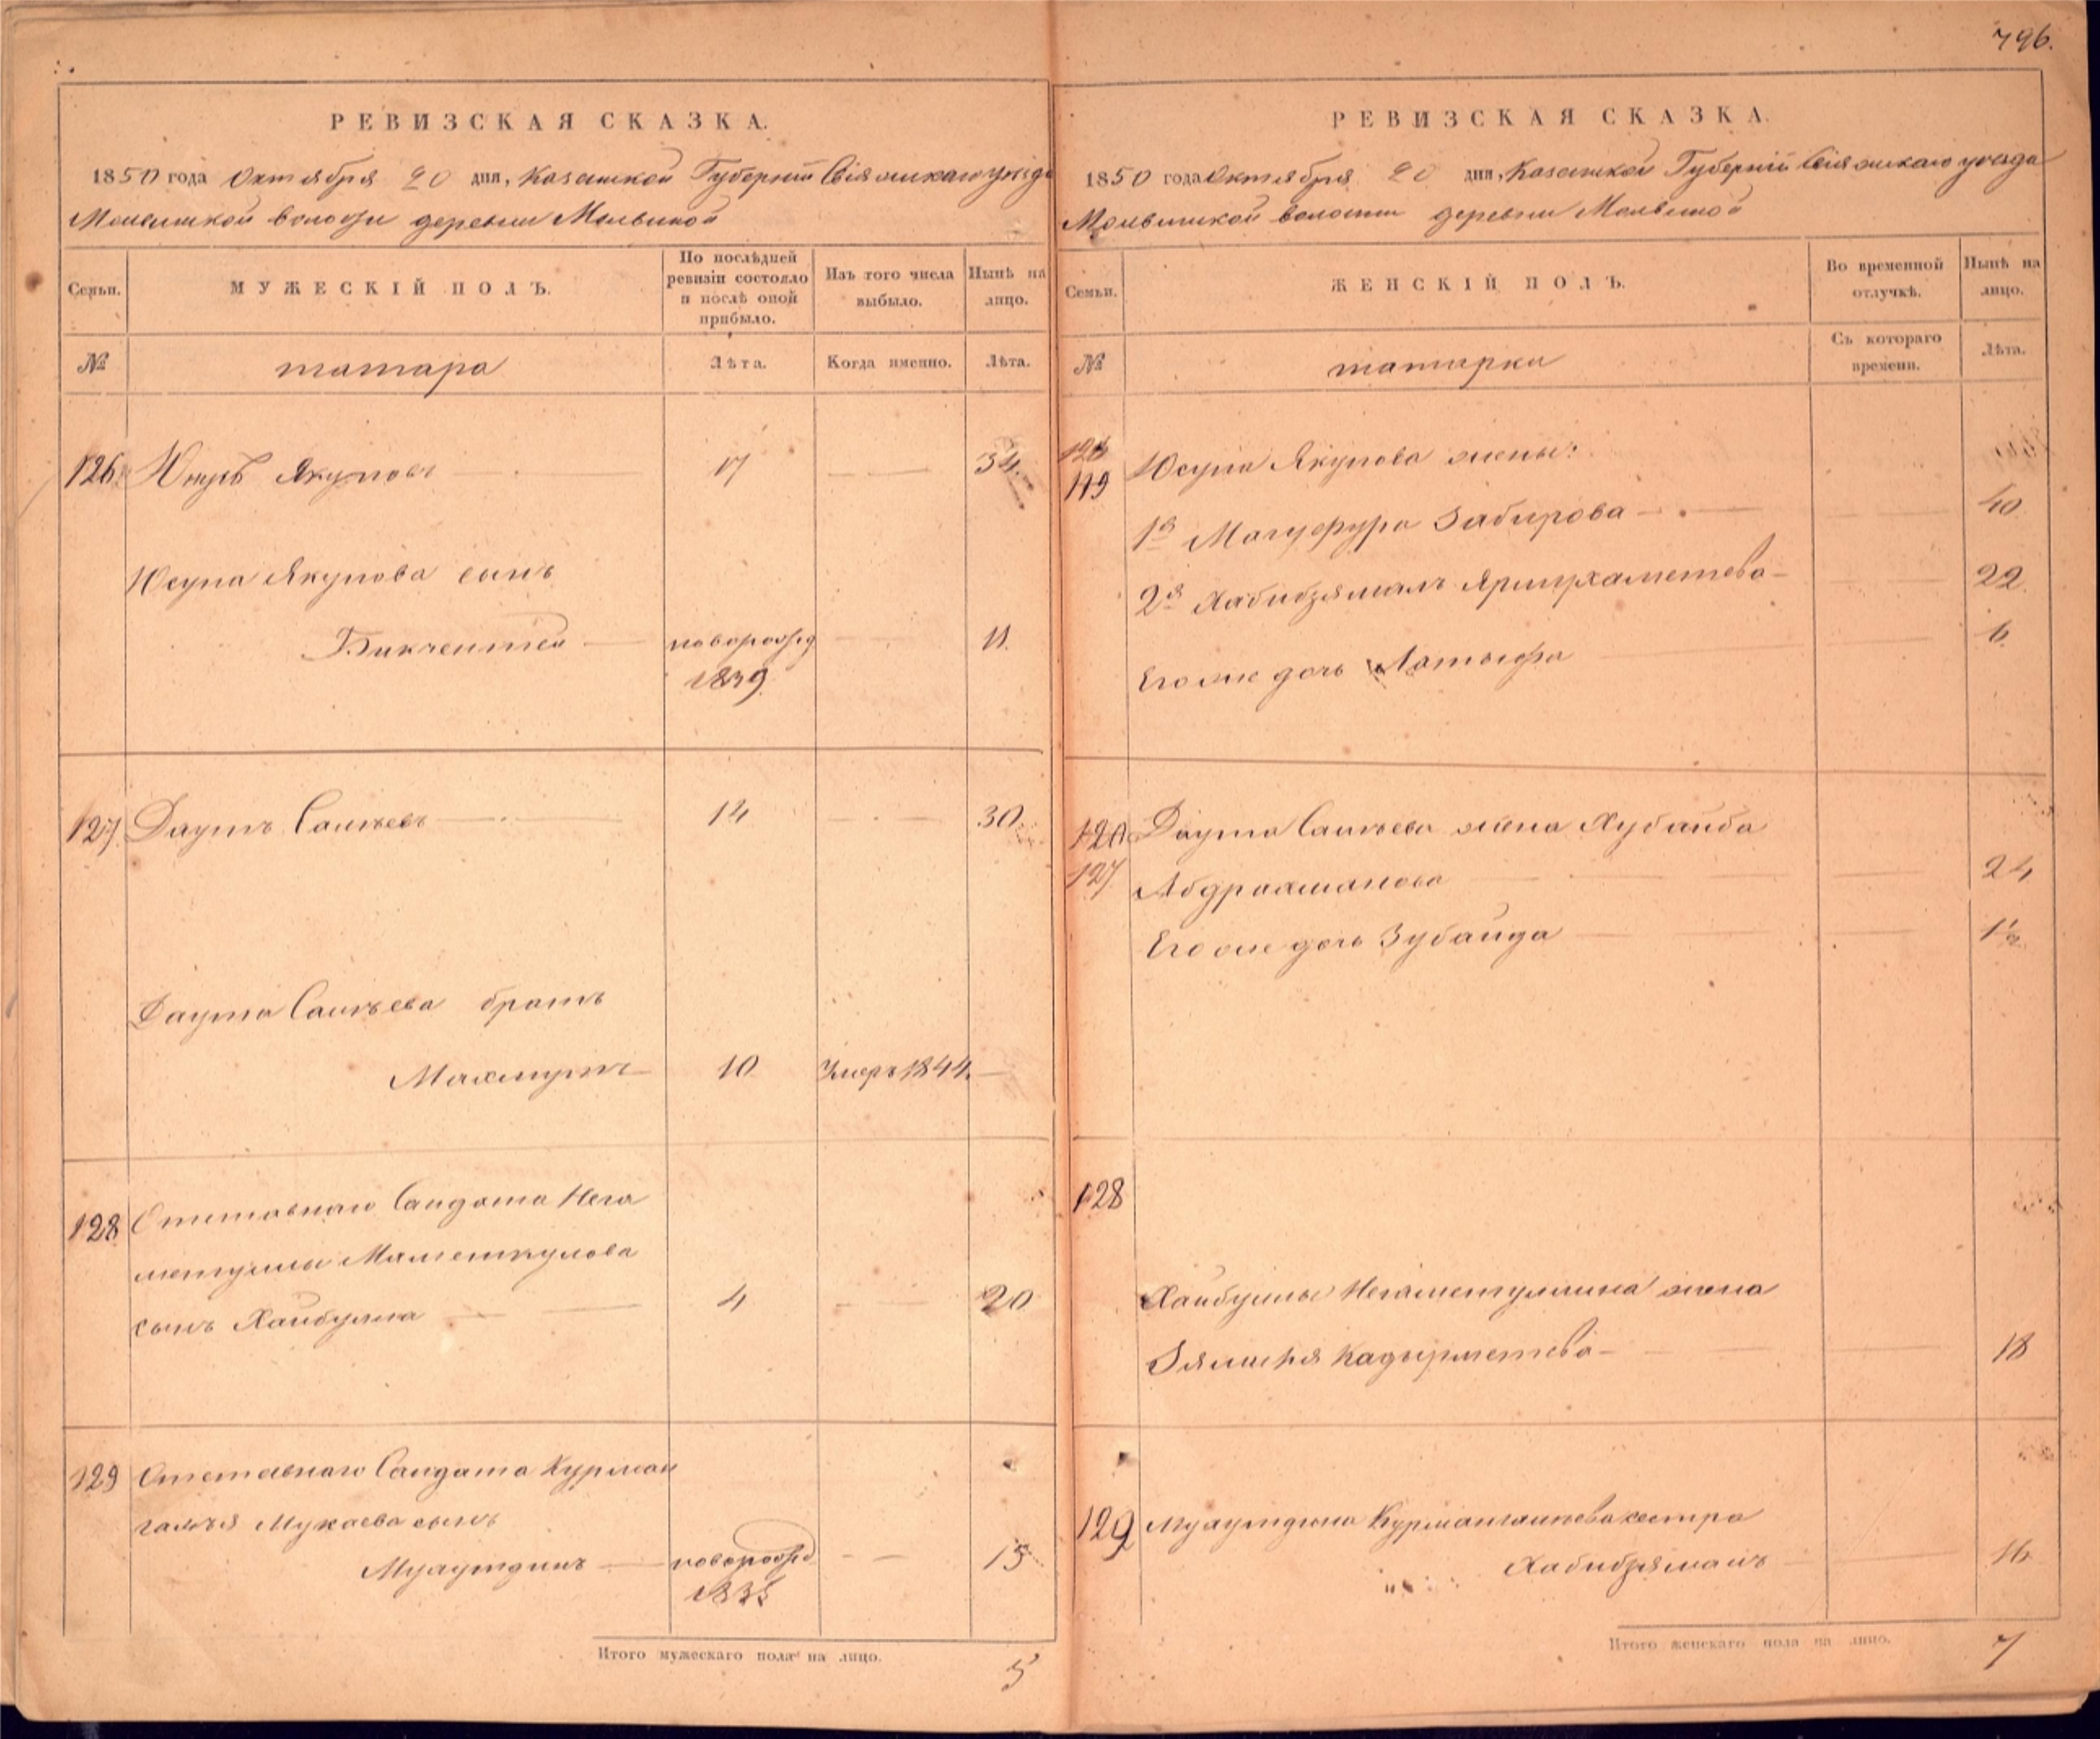 796.
РЕВИЗСКАЯ СКАЗКА.
1850 года Октября 20 дня, Казанской Губернiи Свiяжскаго уѣзда
Молвинской волости деревни Молвиной
Семьи.
МУЖЕСКІЙ ПОЛЪ.
По послѣдней
ревизіи состояло
и послѣ оной
прибыло.
Изъ того числа
выбыло.
Нынѣ на
лицо.
№
татара
Лѣта.
Когда именно.
Лѣта.
126 Юнусъ Якуповъ 17 34
Юсупа Якупова сынъ
Бикчентей новорожд 11.
1839
127. Даутъ Салѣевъ 14 30
Даута Салѣева братъ
Махмутъ 10 Умеръ 1844.
128 Отставнаго Солдата Нега
метуллы Маметкулова
сынъ Хайбулла 4 20
129 Отставнаго Солдата Курман
галѣя Мукаева сынъ
Мулутдинъ новорожд 15
1835
Итого мужескаго пола на лицо. 5
РЕВИЗСКАЯ СКАЗКА.
1850 года Октября 20 дня, Казанской Губернiи Свiяжскаго уѣзда
Молвинской волости деревни Молвиной
Семьи.
ЖЕНСКІЙ ПОЛЪ.
Во временной
отлучкѣ.
Нынѣ на
лицо.
№
татарки
Съ котораго
времени.
Лѣта.
126 Юсупа Якупова жены:
119
1я Магуфура Забирова 40
2я Хабибзямалъ Ярмухаметева 22
Его же дочь Латыфа 6
120 Даута Салѣева жена Хубайба
127 Абдрахманова 24
Его же дочь Зубайда 1½
128
Хайбуллы Негаметуллина жена
Зямиля Кадырметева 18
129 Мулутдина Курмангалѣева сестра
Хабибзямалъ 16
Итого женскаго пола на лицо. 7